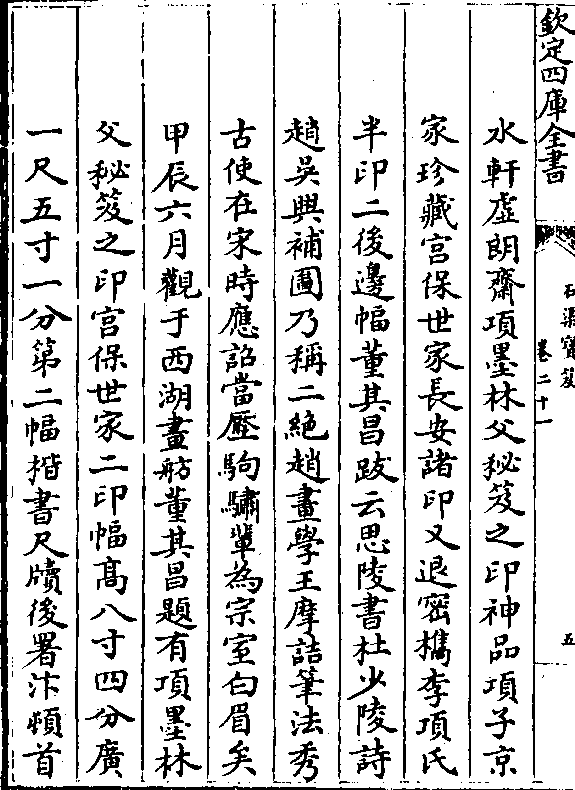 欽定四庫全書
石渠寶笈
卷二十一
五
水軒虛朗齋項墨林父秘笈之印神品項子京
家珍藏宫保世家長安諸印又退密檇李項氏
半印二後邊幅董其昌跋云思陵書杜少陵詩
趙吳興補圖乃稱二絶趙畫學王摩詰筆法秀
古使在宋時應詔當壓駒驌輩為宗室白眉矣
甲辰六月觀于西湖畫舫董其昌題有項墨林
父秘笈之印宫保世家二印幅高八寸四分廣
一尺五寸一分第二幅楷書尺牘後署汴頓首